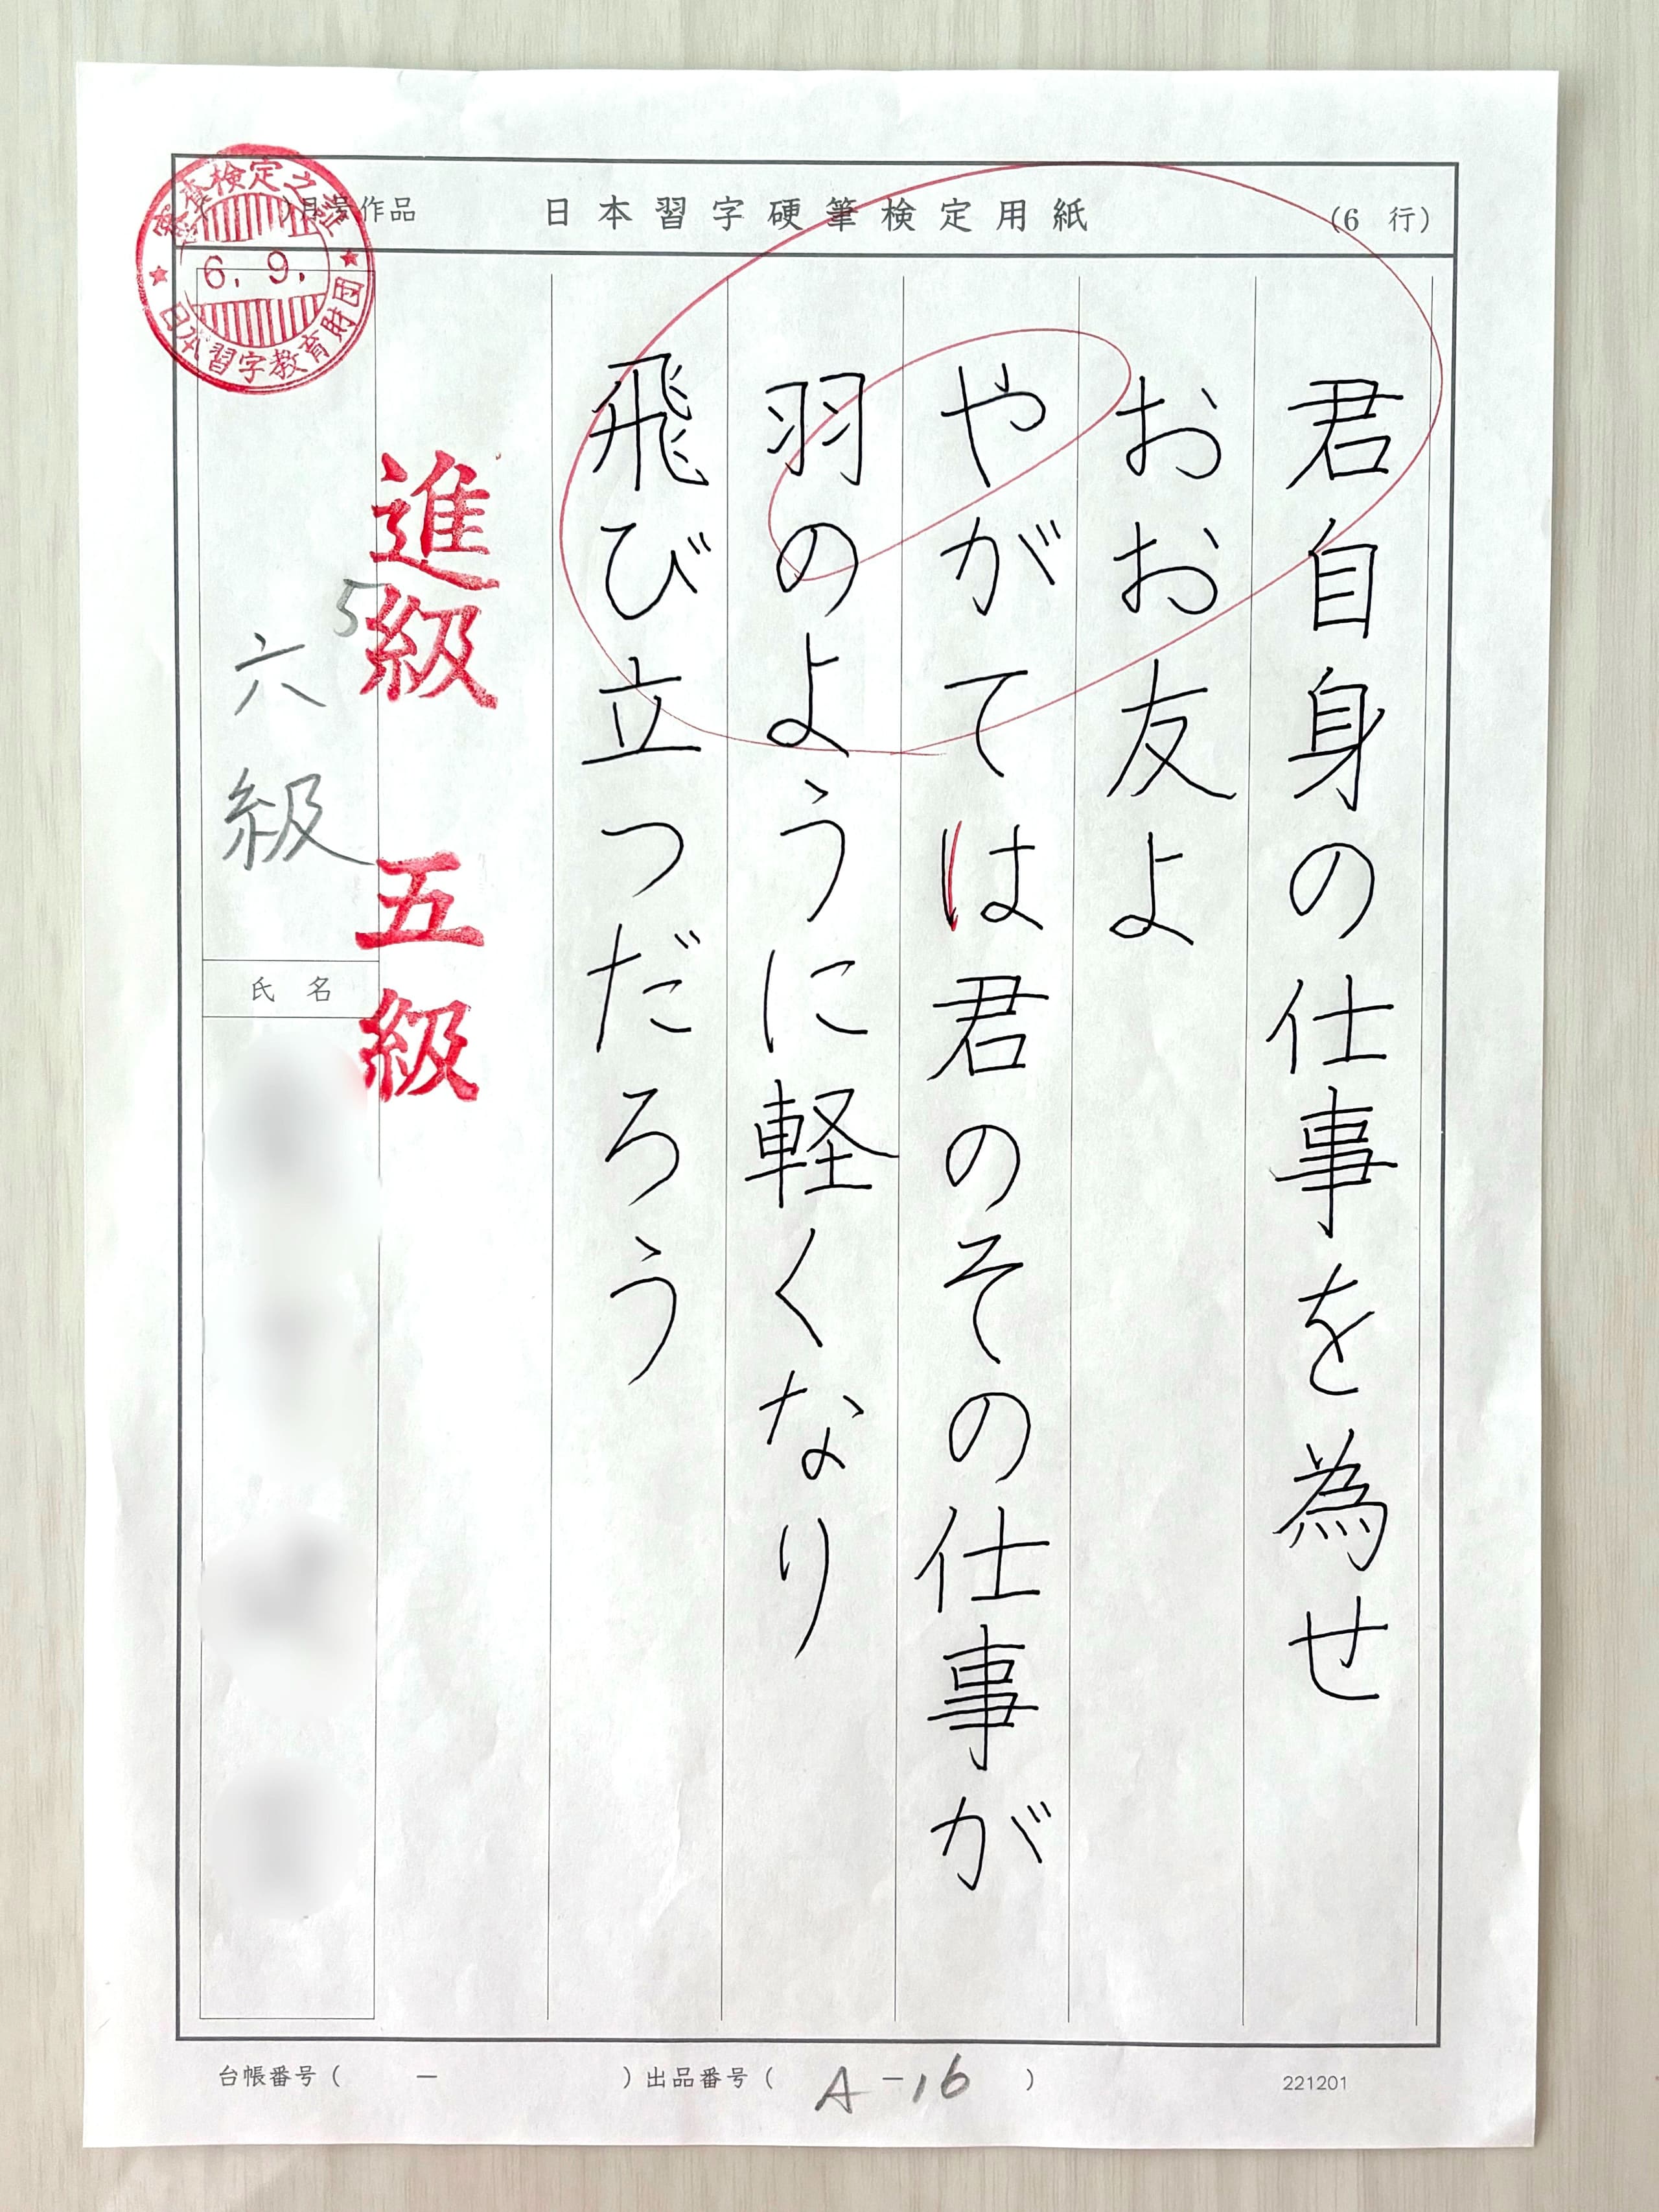 日本習字硬筆検定用紙
(6 行)
)月号作品
審査検定之証
6. 9.
日本習字教育財団
君自身の仕事を為せ
おお友よ
やがては君のその仕事が
羽のように軽くなり
飛び立つだろう
進級 五級
5
六級
氏名
台帳番号( — )出品番号( A-16 )
221201